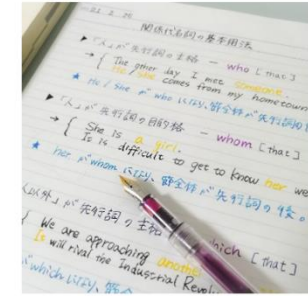 関係代名詞の基本用法
▶「人」が先行詞の主格 — who [that]
→ { The other day I met someone.
He / she comes from my hometown
★ He / she が who になり、節全体が 先行詞の
▶「人」が先行詞の目的格 — whom [that]
→ { She is a girl.
It is difficult to get to know her we
★ her が whom になり、節全体が 先行詞の後。
以外」が先行詞の主格 hich [that]
{ We are approaching anothe
Is will rival the Industrial Revolu
which になり、節